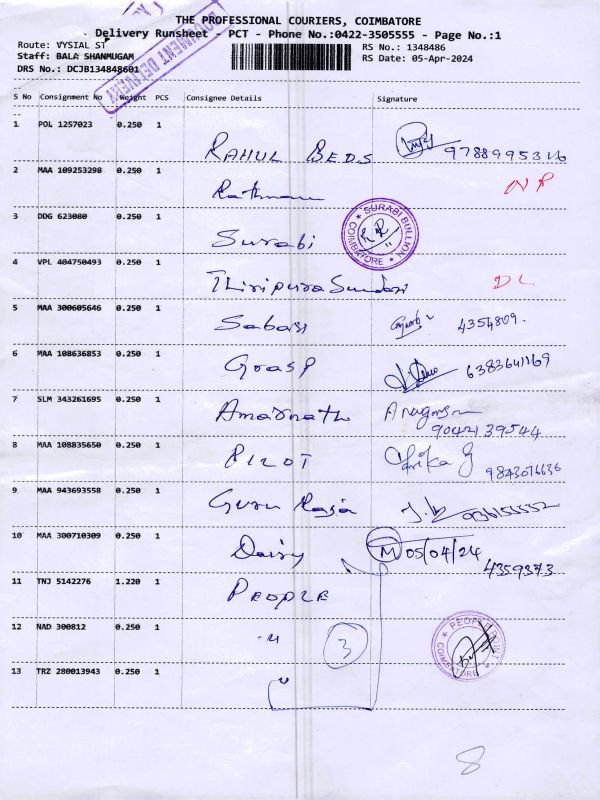 THE PROFESSIONAL COURIERS, COIMBATORE
Delivery Runsheet - PCT - Phone No.:0422-3505555 - Page No.:1
Route: VYSIAL ST
RS No.: 1348486
Staff: BALA SHANMUGAM
RS Date: 05-Apr-2024
DRS No.: DCJB134848601
DOCUMENT DELIVERY
S No Consignment No Weight PCS Consignee Details Signature
1 POL 1257023 0.250 1 RAHUL BEDS
2 MAA 109253298 0.250 1 NP
3 DDG 623080 0.250 1 Surabi SURABI BULLION COIMBATORE
4 VPL 404750493 0.250 1 Thiripura Sundari DL
5 MAA 300605646 0.250 1 Sabari 4354809
6 MAA 108636853 0.250 1 Grasp 6383641169
7 SLM 343261695 0.250 1 Amarnath
9042139544
8 MAA 108835650 0.250 1 PILOT 9843076636
9 MAA 943693558 0.250 1 Guru Raja
10 MAA 300710309 0.250 1 Daisy M 05/04/24
4359373
11 TNJ 5142276 1.220 1 PEOPLE
12 NAD 300812 0.250 1 -11 3 PEOPLE POINT COIMBATORE
13 TRZ 280013943 0.250 1 "
8